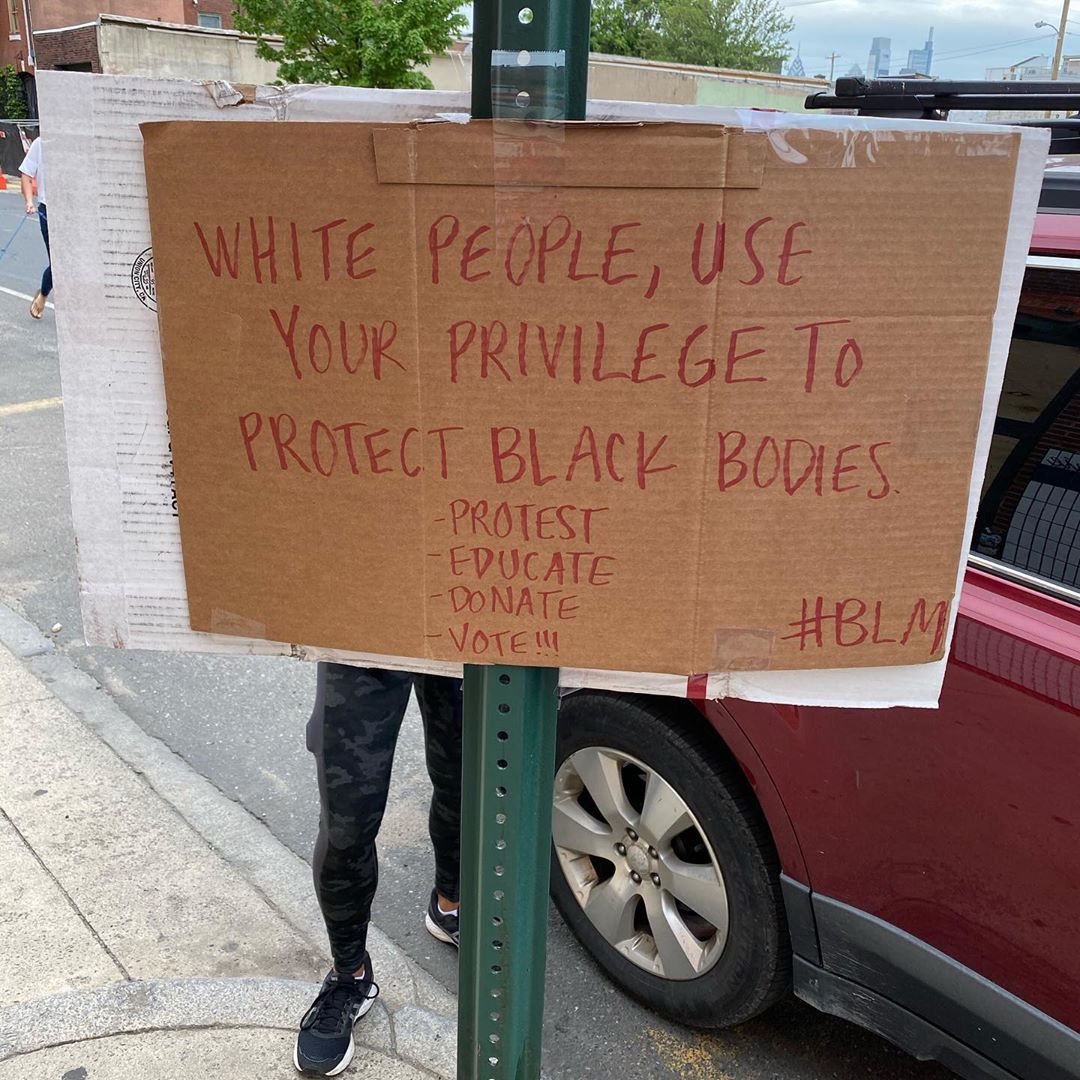 WHITE PEOPLE, USE
YOUR PRIVILEGE TO
PROTECT BLACK BODIES.
-PROTEST
-EDUCATE
-DONATE
-VOTE!!!
#BLM